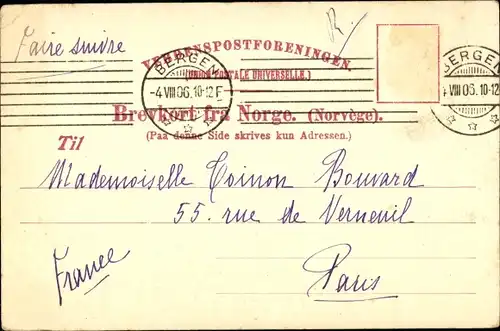 Faire suivre
R.
VERDENSPOSTFORENINGEN.
(UNION POSTALE UNIVERSELLE.)
BERGEN
-4 VIII 06. 10-12 F
BERGEN
4 VIII 06. 10-12
Brevkort fra Norge. (Norvège).
(Paa denne Side skrives kun Adressen.)
Til
Mademoiselle Coinon Bouvard
55. rue de Verneuil
Paris
France